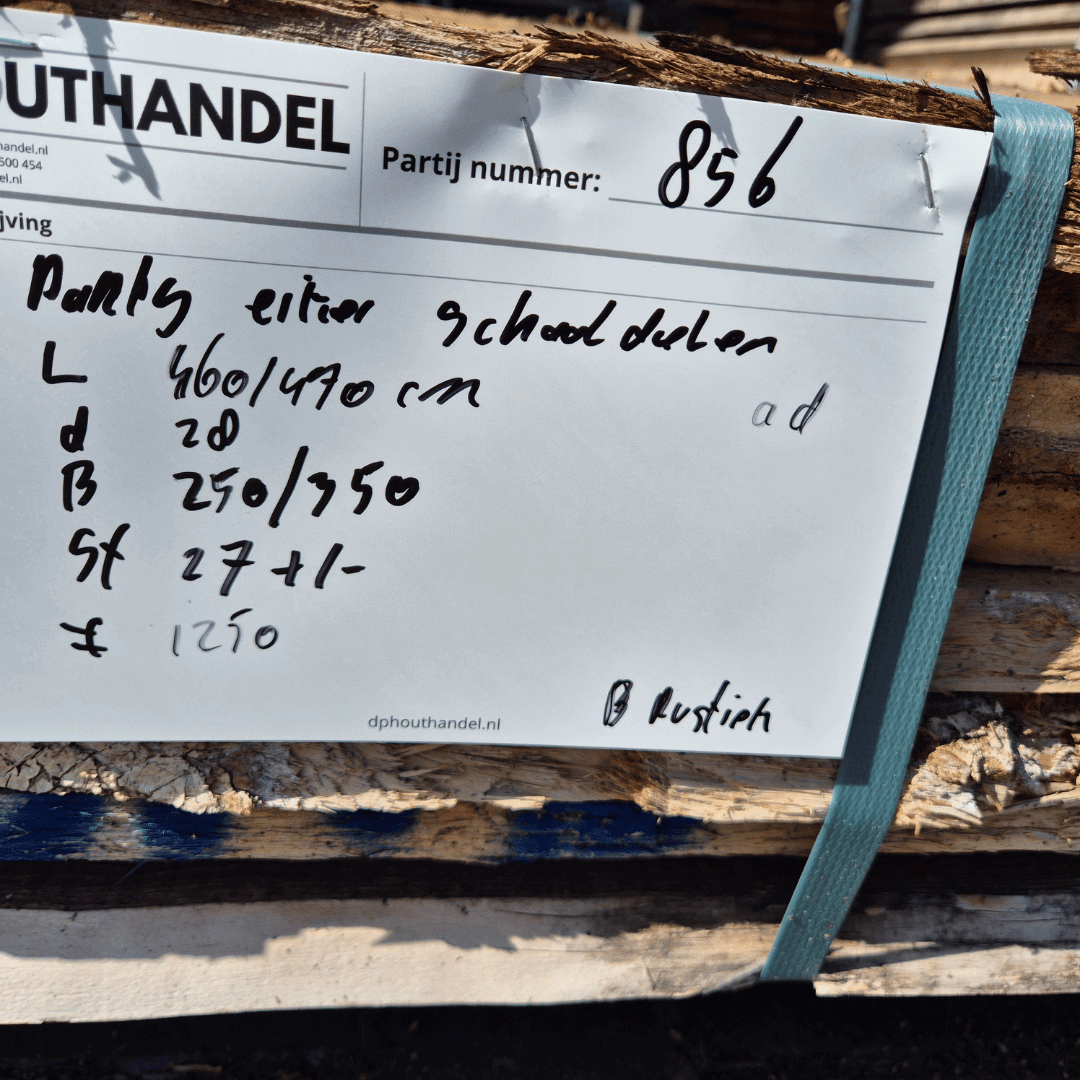 OUTHANDEL
handel.nl
500 454
el.nl
Partij nummer: 856
jving
Partij eiken schaaldelen
L 460/470 cm
ad
d 28
B 250/350
St 27 +/-
1250
B Rustiek
dphouthandel.nl